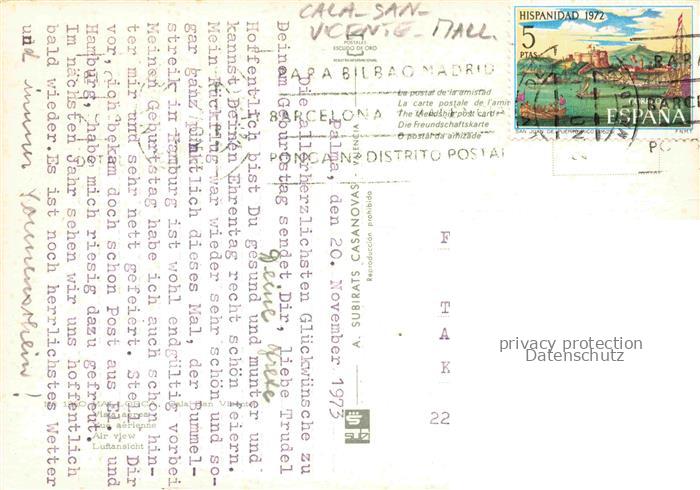 CALA-SAN-
VICENTE-MALL.
HISPANIDAD 1972
5
PTAS
CORREOS
ESPAÑA
SAN JUAN DE PUERTO RICO
F.N.M.T.
POSTALES
ESCUDO DE ORO
PARA BILBAO MADRID
BARCELONA
PONGAN DISTRITO POSTAL
La postal de la amistad
La carte postale de l'amitié
The friendship post card
Die Freundschaftskarte
O postal da amizade
A. SUBIRATS CASANOVAS - VALENCIA
Reproducción prohibida
Palma, den 20. November 1973
Die allerherzlichsten Glückwünsche zu
Deinem Geburtstag sendet Dir, liebe Trudel
Deine Grete
Hoffentlich bist Du gesund und munter und
kannst Deinen Ehrentag recht schön feiern.
Mein Rückflug war wieder sehr schön und so-
gar ganz pünktlich dieses Mal, der Bummel-
streik in Hamburg ist wohl endgültig vorbei
Meinen Geburtstag habe ich auch schön hin-
ter mir und sehr nett gefeiert. Stell Dir
vor, ich bekam doch schon Post aus und
Hamburg, habe mich riesig dazu gefreut.
Im nächsten Jahr sehen wir uns hoffentlich
bald wieder. Es ist noch herrlichstes Wetter
und immer Sonnenschein!
MALLORCA
Cala San Vicente
Vista aérea
Vue aérienne
Air view
Luftansicht
F
T A K
22
privacy protection
Datenschutz